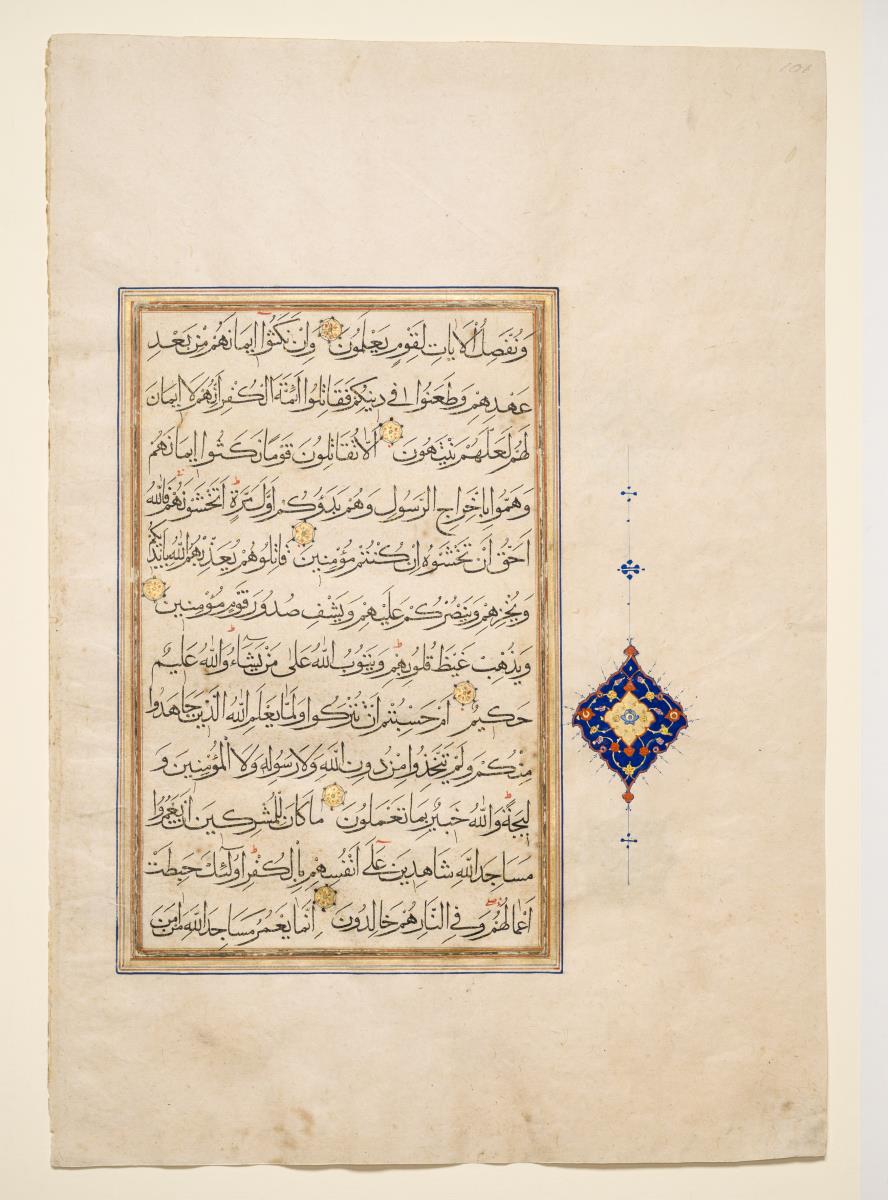 وَنُفَصِّلُ الْآيَاتِ لِقَوْمٍ يَعْلَمُونَ وَإِنْ نَكَثُوا أَيْمَانَهُمْ مِنْ بَعْدِ
عَهْدِهِمْ وَطَعَنُوا فِي دِينِكُمْ فَقَاتِلُوا أَئِمَّةَ الْكُفْرِ إِنَّهُمْ لَا أَيْمَانَ
لَهُمْ لَعَلَّهُمْ يَنْتَهُونَ أَلَا تُقَاتِلُونَ قَوْمًا نَكَثُوا أَيْمَانَهُمْ
وَهَمُّوا بِإِخْرَاجِ الرَّسُولِ وَهُمْ بَدَؤُكُمْ أَوَّلَ مَرَّةٍ أَتَخْشَوْنَهُمْ فَاللَّهُ
أَحَقُّ أَنْ تَخْشَوْهُ إِنْ كُنْتُمْ مُؤْمِنِينَ قَاتِلُوهُمْ يُعَذِّبْهُمُ اللَّهُ بِأَيْدِيكُمْ
وَيُخْزِهِمْ وَيَنْصُرْكُمْ عَلَيْهِمْ وَيَشْفِ صُدُورَ قَوْمٍ مُؤْمِنِينَ
وَيُذْهِبْ غَيْظَ قُلُوبِهِمْ وَيَتُوبُ اللَّهُ عَلَى مَنْ يَشَاءُ وَاللَّهُ عَلِيمٌ
حَكِيمٌ أَمْ حَسِبْتُمْ أَنْ تُتْرَكُوا وَلَمَّا يَعْلَمِ اللَّهُ الَّذِينَ جَاهَدُوا
مِنْكُمْ وَلَمْ يَتَّخِذُوا مِنْ دُونِ اللَّهِ وَلَا رَسُولِهِ وَلَا الْمُؤْمِنِينَ وَ
لِيجَةً وَاللَّهُ خَبِيرٌ بِمَا تَعْمَلُونَ مَا كَانَ لِلْمُشْرِكِينَ أَنْ يَعْمُرُوا
مَسَاجِدَ اللَّهِ شَاهِدِينَ عَلَى أَنْفُسِهِمْ بِالْكُفْرِ أُولَئِكَ حَبِطَتْ
أَعْمَالُهُمْ وَفِي النَّارِ هُمْ خَالِدُونَ إِنَّمَا يَعْمُرُ مَسَاجِدَ اللَّهِ مَنْ آمَنَ